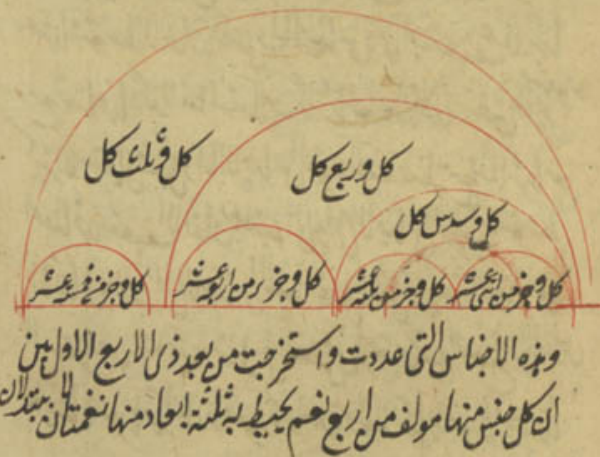 كل وثلث كل
كل وربع كل
كل وسدس كل
كل وجزء من اثنى عشر
كل وجزء من ثلثة عشر
كل وجزء من اربعة عشر
كل وجزء من خمسة عشر
وهذه الاجناس التى عددت واستخرجت من بعد ذى الاربع الاول بين
ان كل جنس منها مولف من اربع نغم يحيط به ثلثة ابعاد منها نغمتان لا يتبدلان